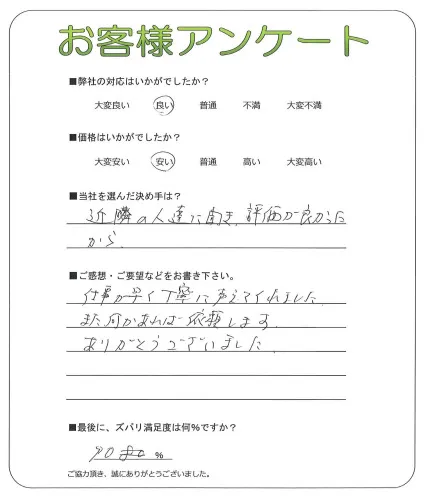 お客様アンケート
■弊社の対応はいかがでしたか？
大変良い 良い 普通 不満 大変不満
■価格はいかがでしたか？
大変安い 安い 普通 高い 大変高い
■当社を選んだ決め手は？
近隣の人達に聞き、評価が良かった
から、
■ご感想・ご要望などをお書き下さい。
仕事が早く丁寧に えてくれました
また何かあれば依頼します。
ありがとうございました
■最後に、ズバリ満足度は何%ですか？
90 %
ご協力頂き、誠にありがとうございました。